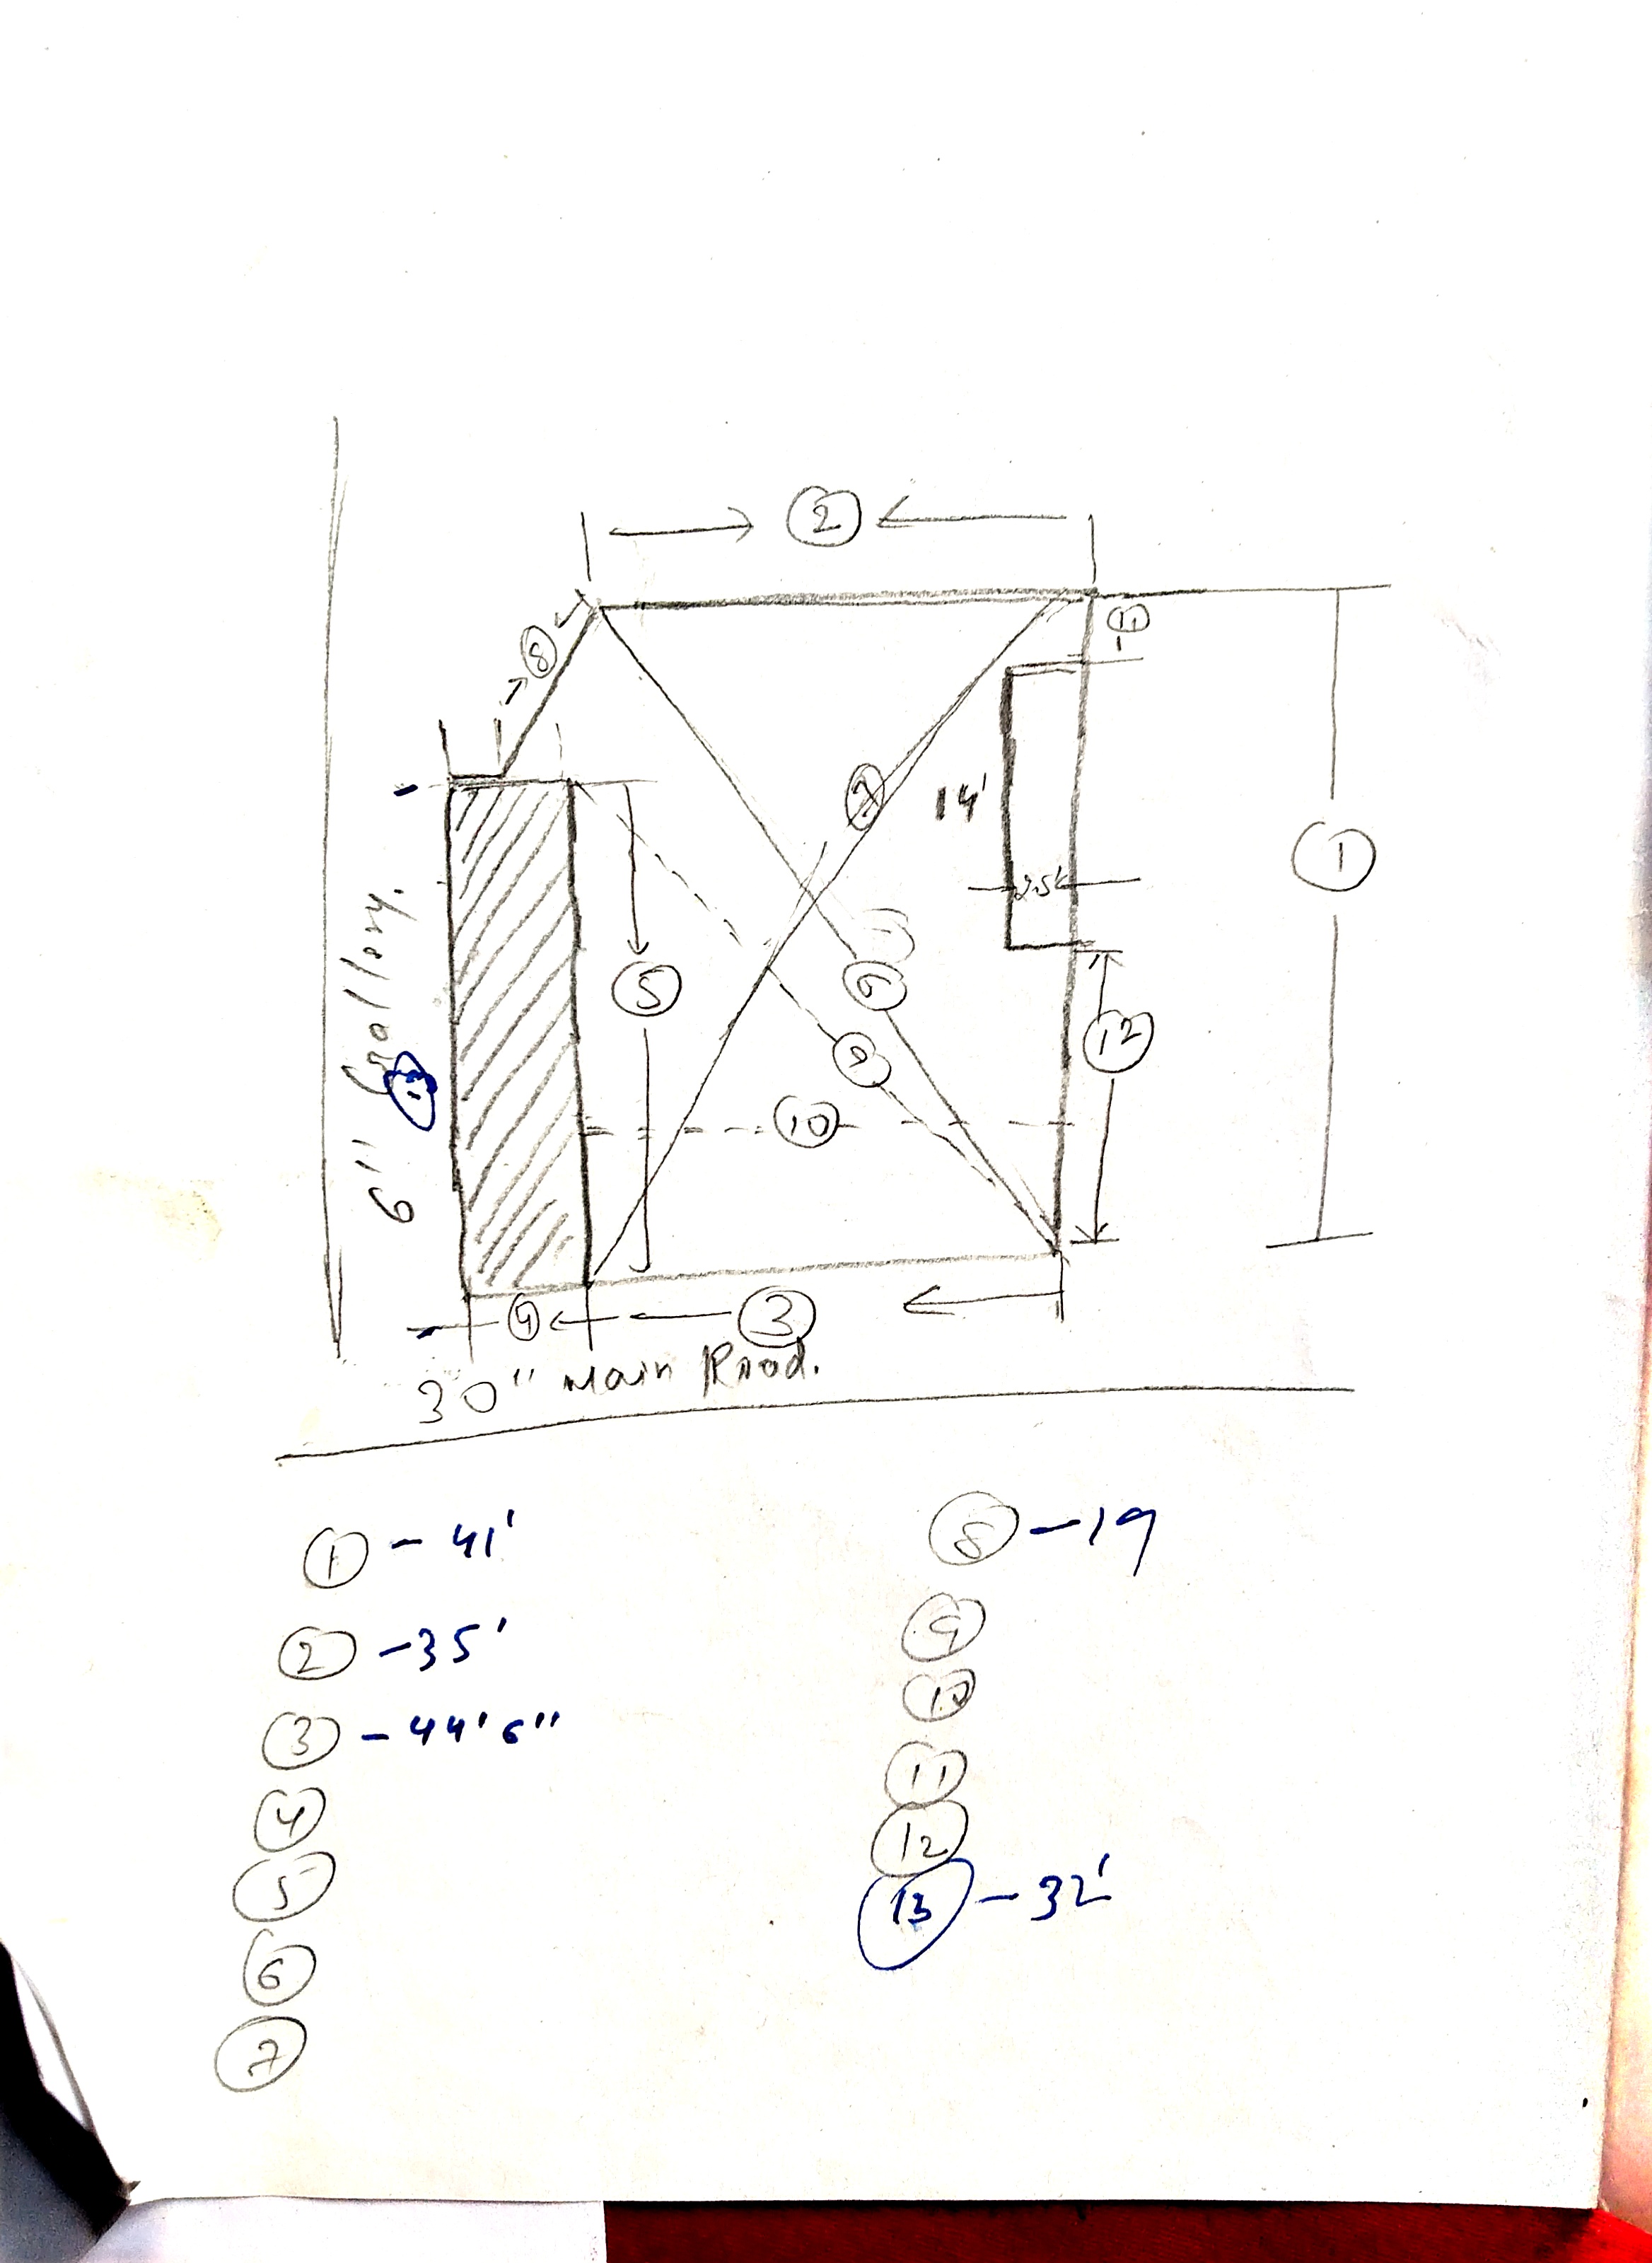 2
8
11
7
14'
1
2.5'
6" Gallery.
5
6
13
9
12
10
4
3
30" Main Road.
1 - 41'
2 - 35'
3 - 44'6"
4
5
6
7
8 - 19
9
10
11
12
13 - 32'